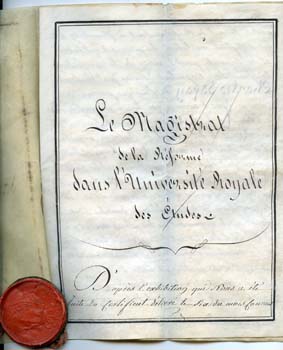 Le Magistrat
de la Réforme
dans l'Université Royale
des Études
D'après l'exhibition qui Nous a été
faite du Certificat délivré le Six du mois Courant